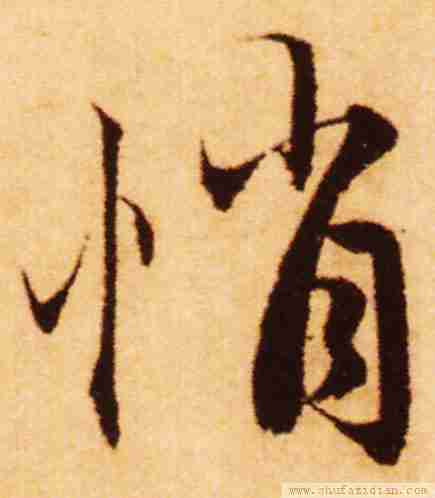 悄
www.shufazidian.com